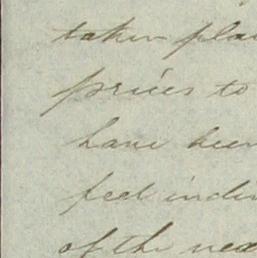 taken pla
prices to
have been
feel inde
of the nex